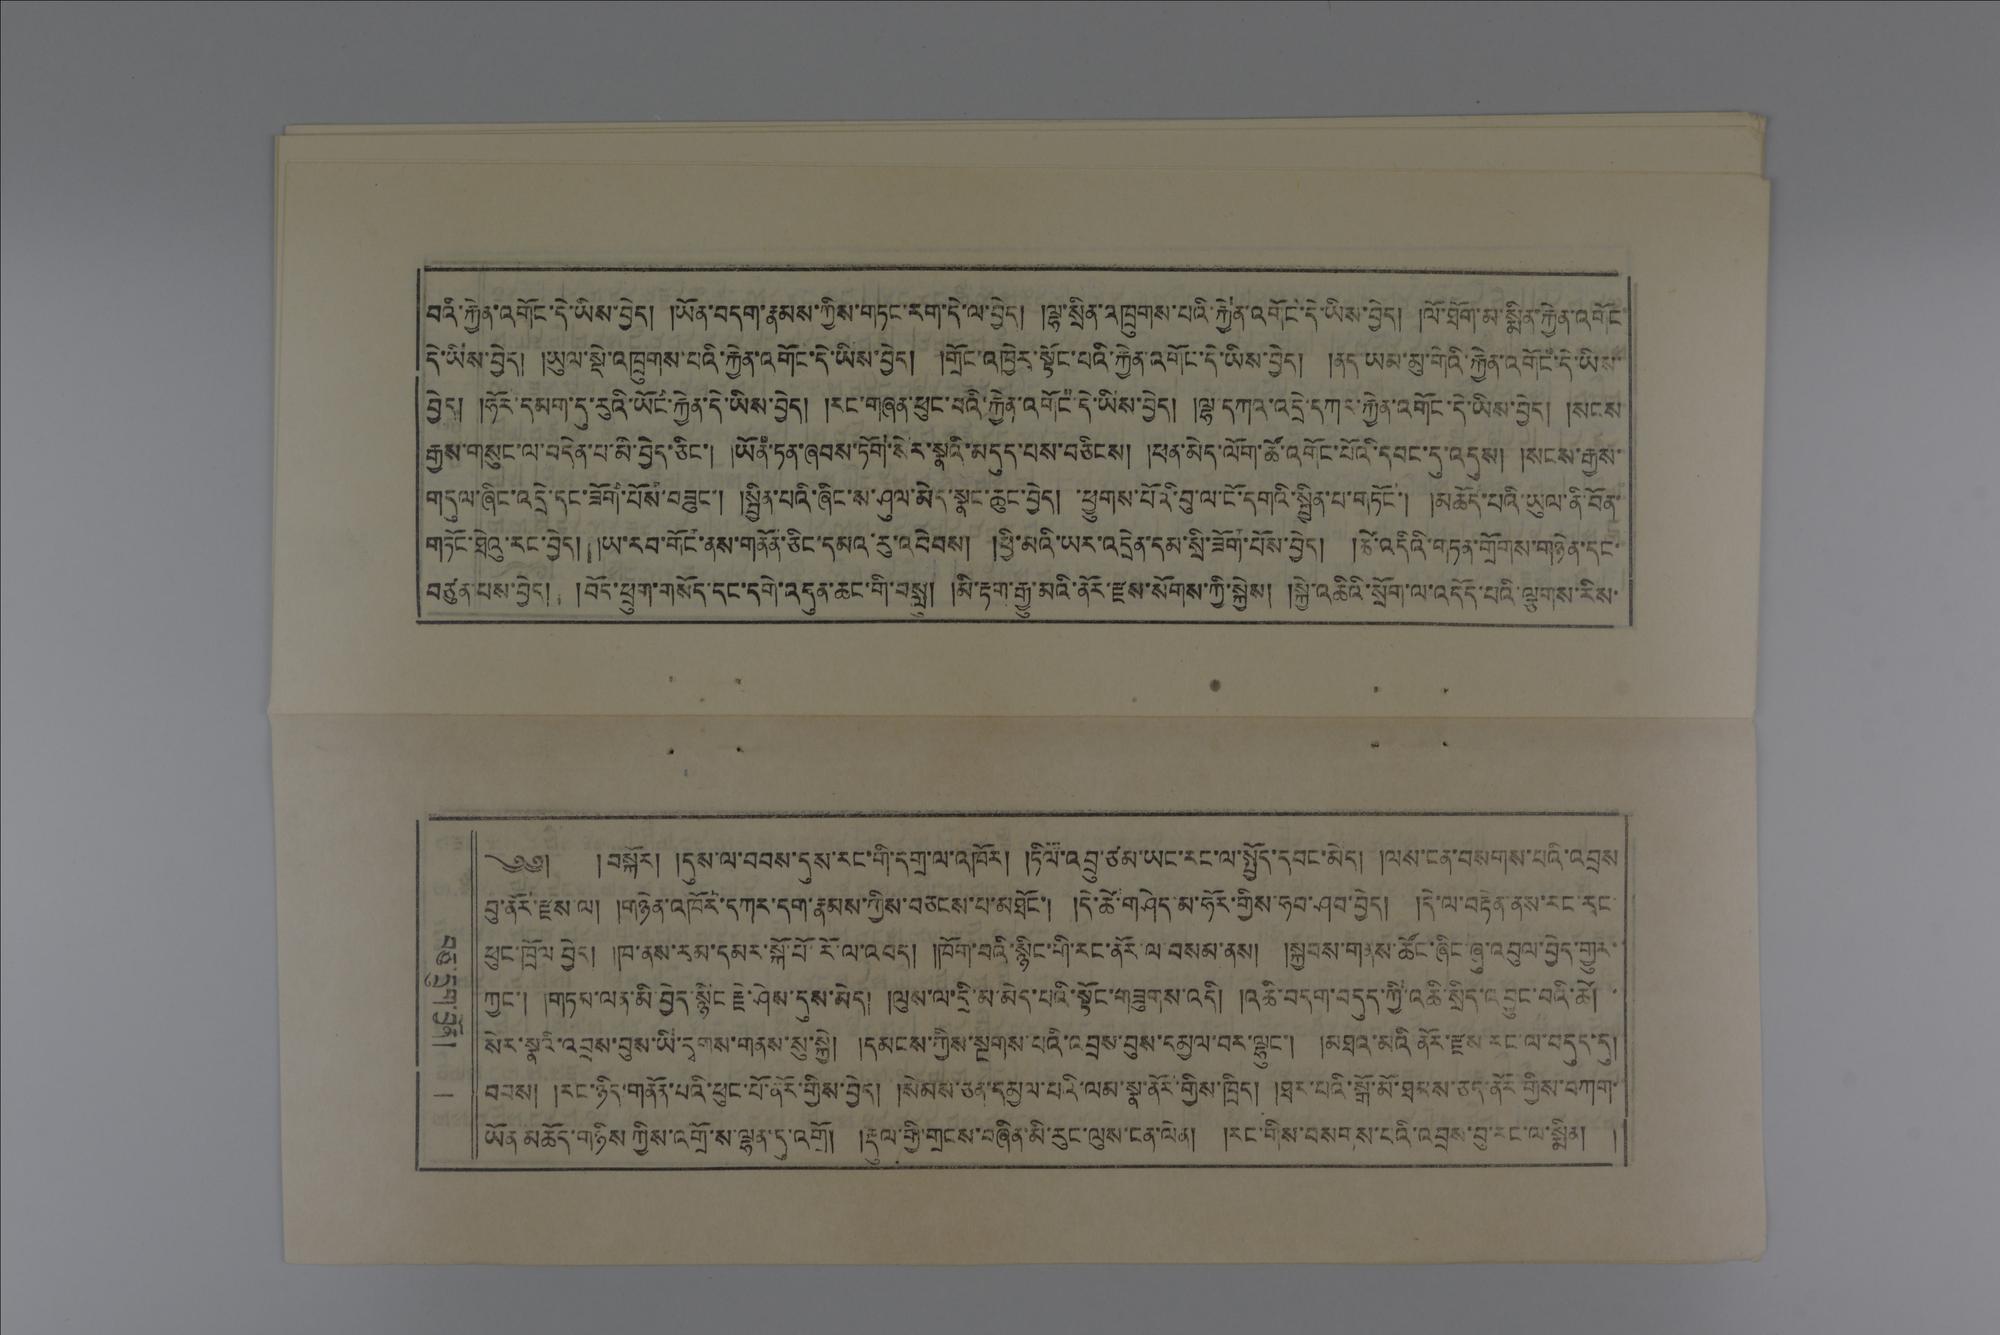 བའི་རྐྱེན་འགོང་དེ་ཡིས་བྱེད། །ཡོན་བདག་རྣམས་ཀྱིས་གཏང་རག་དེ་ལ་བྱེད། །ལྷ་སྲིན་འཁྲུགས་པའི་རྐྱེན་འགོང་དེ་ཡིས་བྱེད། །ལོ་ཐོག་མ་སྨིན་རྐྱེན་འགོང་
དེ་ཡིས་བྱེད། །ཡུལ་སྡེ་འཁྲུགས་པའི་རྐྱེན་འགོང་དེ་ཡིས་བྱེད། །གྲོང་འཁྱེར་སྟོང་པའི་རྐྱེན་འགོང་དེ་ཡིས་བྱེད། །ནད་ཡམ་མུ་གེའི་རྐྱེན་འགོང་དེ་ཡིས་
བྱེད། །ཧོར་དམག་དུ་རུའི་ཡོང་རྐྱེན་དེ་ཡིས་བྱེད། །རང་གཞན་ཕུང་བའི་རྐྱེན་འགོང་དེ་ཡིས་བྱེད། །ལྷ་དཀའ་འདྲེ་དཀར་རྐྱེན་འགོང་དེ་ཡིས་བྱེད། །སངས་
རྒྱས་གསུང་ལ་བདེན་པ་མི་བྱེད་ཅིང་། །ཡོན་ཏན་ཞབས་ཏོག་སེར་སྣའི་མདུད་པས་བཅིངས། །ཕན་མེད་ལོག་ཚེ་འགོང་པོའི་དབང་དུ་འདུས། །སངས་རྒྱས་
གདུལ་ཞིང་འདྲེ་དང་ཟོག་པོས་བཟུང་། །སྦྱིན་པའི་ཞིང་ས་ཤུལ་མེད་སྣང་ཆུང་བྱེད། ཕྱུགས་པོ་འི་བུ་ལ་ངོ་དགའི་སྦྱིན་པ་གཏོང་། །མཆོད་པའི་ཡུལ་ནི་བོན་
གཏོང་ཐེའུ་རང་བྱེད། །ཡ་རབ་གོང་ནས་གནོན་ཅིང་དམའ་རུ་འབེབས། །ཕྱི་མའི་ཡར་འདྲེན་དམ་སྲི་ཟོག་པོས་བྱེད། །ཚེ་འདིའི་གཏན་གྲོགས་གཉེན་དང་
བཙུན་པས་བྱེད། །བོད་ཕྲུག་གསོད་དང་དགེ་འདུན་ཆང་གི་བསླུ། །མི་རྟག་རྒྱུ་མའི་ནོར་རྫས་སོགས་ཀྱི་སྐྱེས། །སྐྱེ་འཆིའི་སྲོག་ལ་འདོད་པའི་ལྕུགས་རིས་
༄༅། །བསྐོར། །དུས་ལ་བབས་དུས་རང་གི་དགྲ་ལ་འཁོར། །ཏིལ་འབྲུ་ཙམ་ཡང་རང་ལ་སྤྱོད་དབང་མེད། །ལས་ངན་བསགས་པའི་འབྲས་
བུ་ནོར་རྫས་ལ། །གཉེན་འཁོར་དཀར་དག་རྣམས་ཀྱིས་བཅངས་པ་མཐོང་། །དེ་ཚེ་གཤེད་མ་ཧོར་གྱིས་ཧབ་ཤབ་བྱེད། །དེ་ལ་བརྟེན་ནས་རང་རང་
ཕུང་ཁྲོལ་བྱེད། །ཁ་ནས་རུམ་དམར་སྐོ་པོ་རོ་ལ་འབད། །ཁོག་བའི་སྙིང་གི་རང་ནོར་ལ་བསམ་ནས། །སྐྱབས་གནས་ཚོང་ཞིང་ཞུ་འབུལ་བྱེད་གྱུར་
ཀྱང་། །གཏམ་ལན་མི་བྱེད་སྙིང་རྗེ་ཤེས་དུས་མེད། །ལུས་ལ་དྲི་མ་མེད་པའི་སྟོང་གཟུགས་འདི། །འཆི་བདག་བདུད་ཀྱི་འཆི་སྲིད་འབྱུང་བའི་ཚེ།
སེར་སྣའི་འབྲས་བུས་ཡི་དྭགས་གནས་སུ་སྐྱེ། །དམངས་ཀྱིས་སྔགས་པའི་འབྲས་བུས་དམྱལ་བར་ལྟུང་། །མཐའ་མའི་ནོར་རྫས་རང་ལ་བདུད་དུ།
བབས། །རང་ཉིད་གནོན་པའི་ཕུང་པོ་ནོར་གྱིས་བྱེད། །སེམས་ཅན་དམྱལ་པའི་ལམ་སྣ་ནོར་གྱིས་ཁྲིད། །ཐར་པའི་སྒོ་མོ་ཐམས་ཅད་ནོར་གྱིས་བཀག་
ཡོན་མཆོད་གཉིས་ཀྱིས་འགྲོ་ས་ལྷན་དུ་འགྲོ། །རྡུལ་གྱི་གྲངས་བཞིན་མི་རུང་ལུས་ངན་ལེན། །རང་གིས་བསགས་པའི་འབྲས་བུ་རང་ལ་སྨིན། །